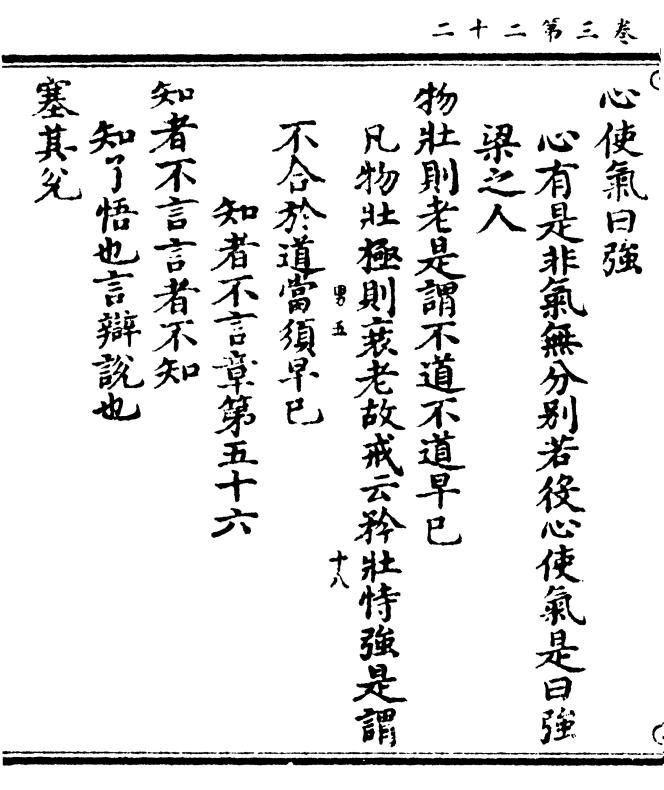 卷三第二十二
心使氣曰強
心有是非氣無分別若役心使氣是曰強
梁之人
物壯則老是謂不道不道早已
凡物壯極則衰老故戒云矜壯恃強是謂
男五
十八
不合於道當須早已
知者不言章第五十六
知者不言言者不知
知了悟也言辯說也
塞其兌